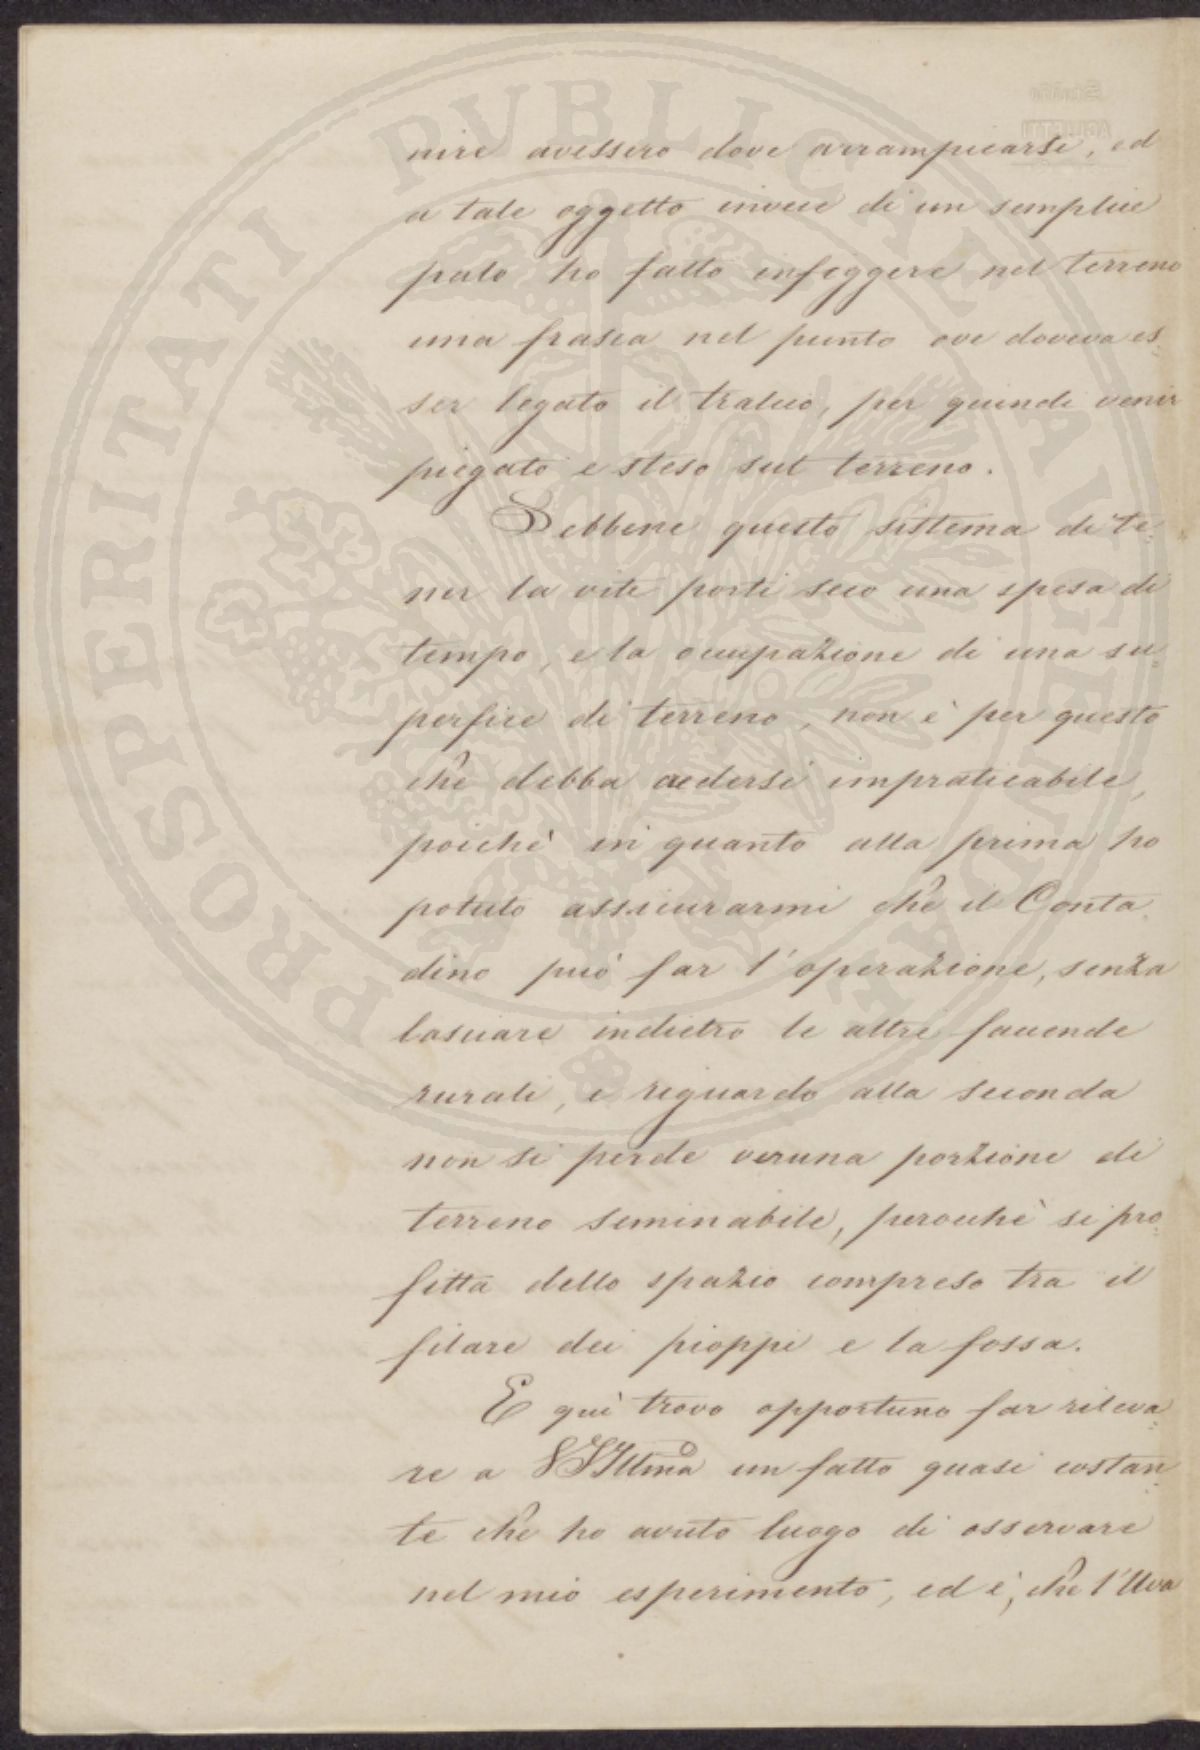 PROSPERITATI PUBLICAE AUGENDAE
nire avessero dove arrampicarsi, ed
a tale oggetto invece di un semplice
palo ho fatto infiggere nel terreno
una frasca nel punto ove doveva es
ser legato il tralcio, per quindi venir
piegato e steso sul terreno.
Sebbene questo sistema di te
ner la vite porti seco una spesa di
tempo, e la occupazione di una su
perfice di terreno, non è per questo
che debba credersi impraticabile,
poichè in quanto alla prima ho
potuto assicurarmi che il Conta
dino può far l'operazione, senza
lasciare indietro le altre faccende
rurali, e riguardo alla seconda
non si perde veruna porzione di
terreno seminabile, perocchè si pro
fitta dello spazio compreso tra il
filare dei pioppi e la fossa.
E quì trovo opportuno far rileva
re a VS Illma un fatto quasi costan
te che ho avuto luogo di osservare
nel mio esperimento, ed è, che l'Uva